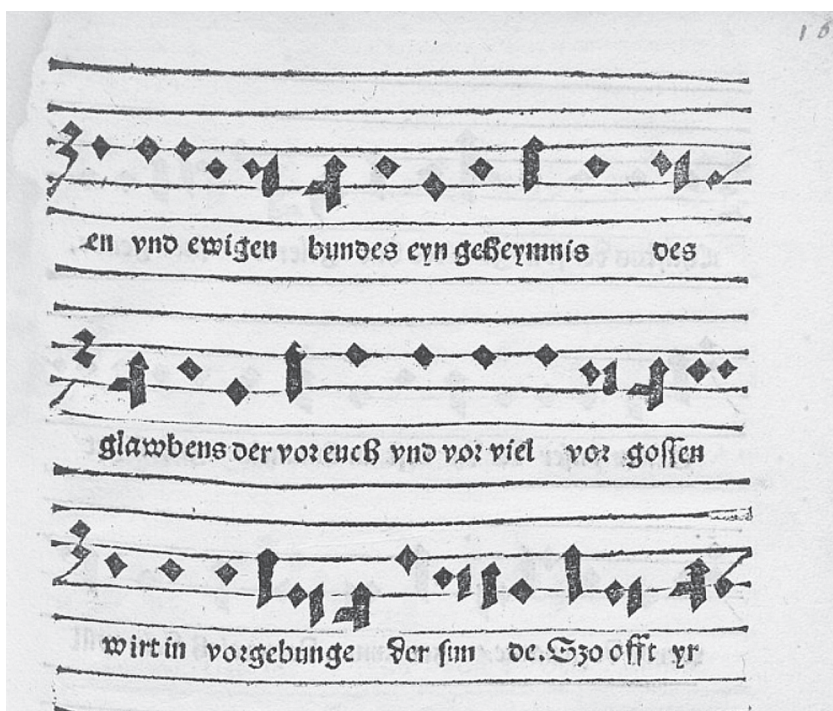 16
en vnd ewigen bundes eyn geheymnis des
glawbens der vor euch vnd vor viel vor gossen
wirt in vorgebunge der sun de. Szo offt yr